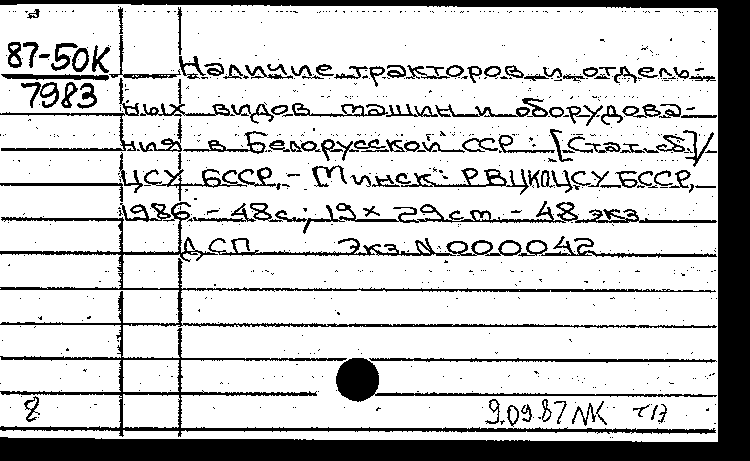 87-50К
7983
Наличие тракторов и отдель-
ных видов машин и оборудова-
ния в Белорусской ССР: [Стат. сб]/
ЦСУ БССР, - Минск: РВЦКПЦСУ БССР,
1986 - 48 с.; 19 х 29 см. - 48 экз.
ДСП. Экз. N. 000042
8
9.09.87 МК